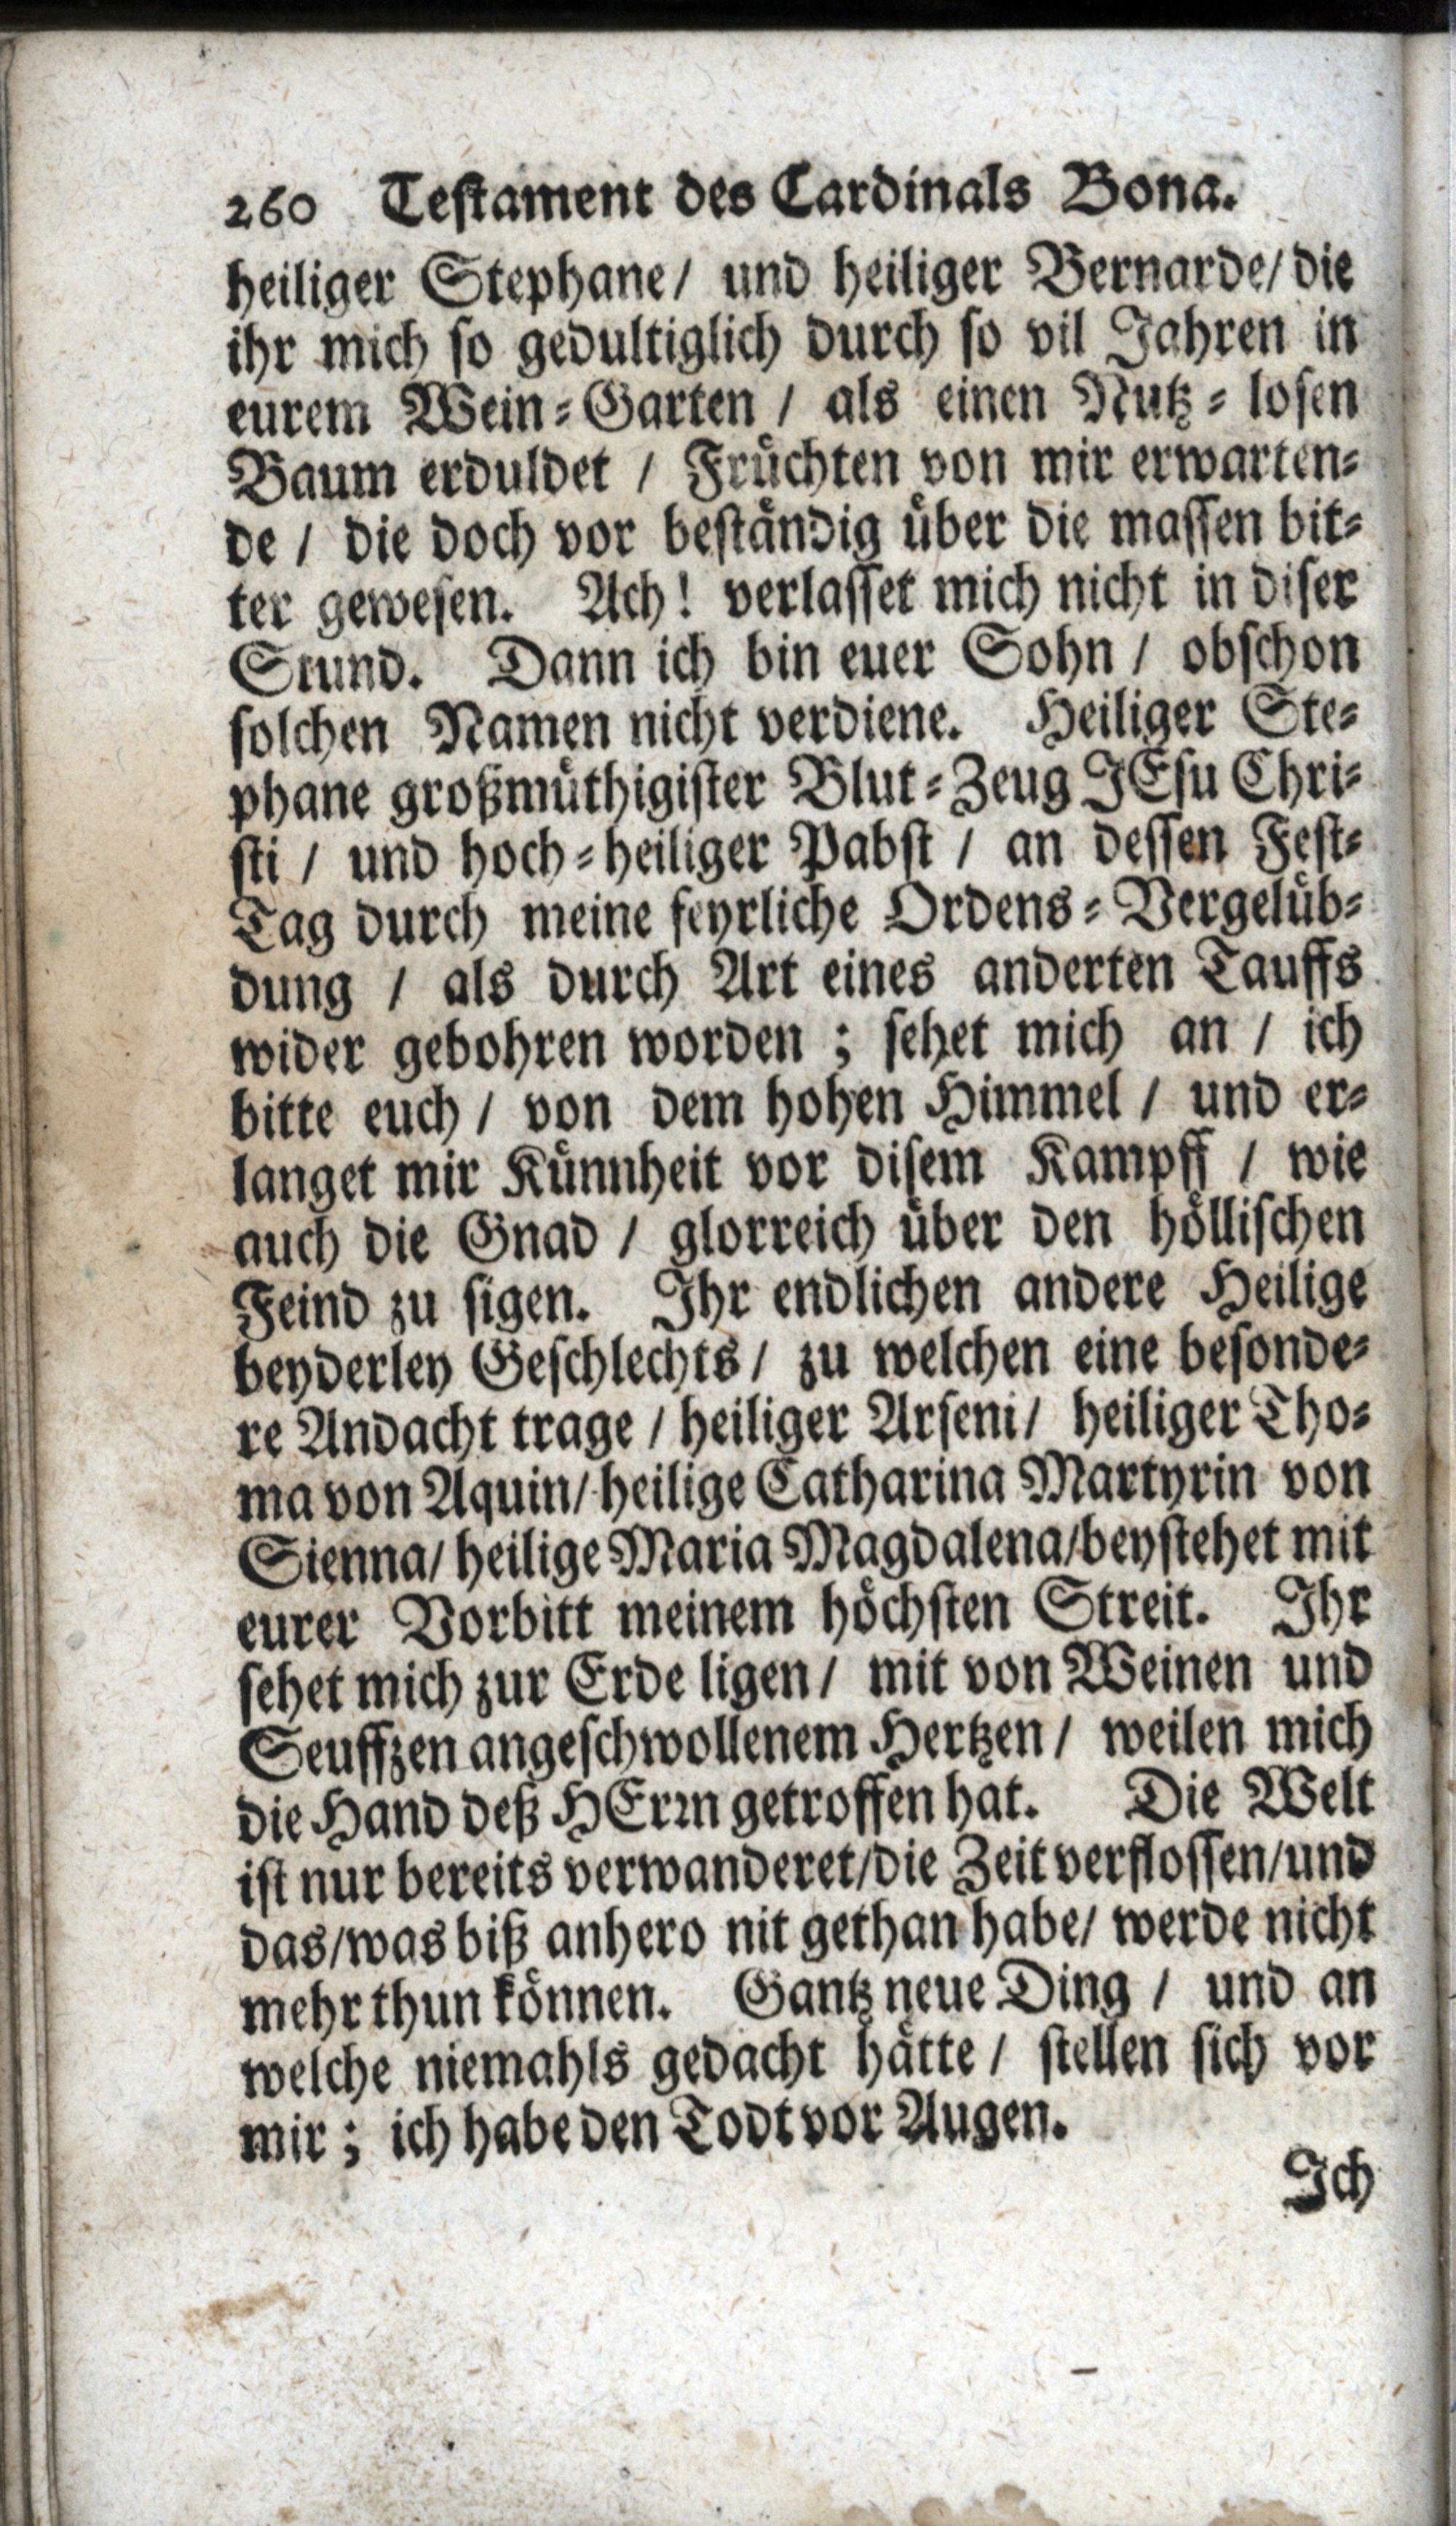 260 Teſtament des Cardinals Bona.
heiliger Stephane/ und heiliger Bernarde/ die
ihr mich ſo gedultiglich durch ſo vil Jahren in
eurem Wein-Garten / als einen Nutz-loſen
Baum erduldet / Fruͤchten von mir erwarten-
de / die doch vor beſtaͤndig uͤber die maſſen bit-
ter geweſen. Ach! verlaſſet mich nicht in diſer
Stund. Dann ich bin euer Sohn / obſchon
ſolchen Namen nicht verdiene. Heiliger Ste-
phane großmuͤthigiſter Blut-Zeug JEſu Chri-
ſti / und hoch-heiliger Pabſt / an deſſen Feſt-
Tag durch meine feyrliche Ordens-Vergeluͤb-
dung / als durch Art eines anderten Tauffs
wider gebohren worden ; ſehet mich an / ich
bitte euch / von dem hohen Himmel / und er-
langet mir Kuͤnnheit vor diſem Kampff / wie
auch die Gnad / glorreich uͤber den hoͤlliſchen
Feind zu ſigen. Ihr endlichen andere Heilige
beyderley Geſchlechts / zu welchen eine beſonde-
re Andacht trage / heiliger Arſeni / heiliger Tho-
ma von Aquin/ heilige Catharina Martyrin von
Sienna/ heilige Maria Magdalena/beyſtehet mit
eurer Vorbitt meinem hoͤchſten Streit. Ihr
ſehet mich zur Erde ligen / mit von Weinen und
Seuffzen angeſchwollenem Hertzen / weilen mich
die Hand deß HErꝛn getroffen hat. Die Welt
iſt nur bereits verwanderet/die Zeit verfloſſen/und
das/was biß anhero nit gethan habe/ werde nicht
mehr thun koͤnnen. Gantz neue Ding / und an
welche niemahls gedacht haͤtte / ſtellen ſich vor
mir ; ich habe den Todt vor Augen.
Ich